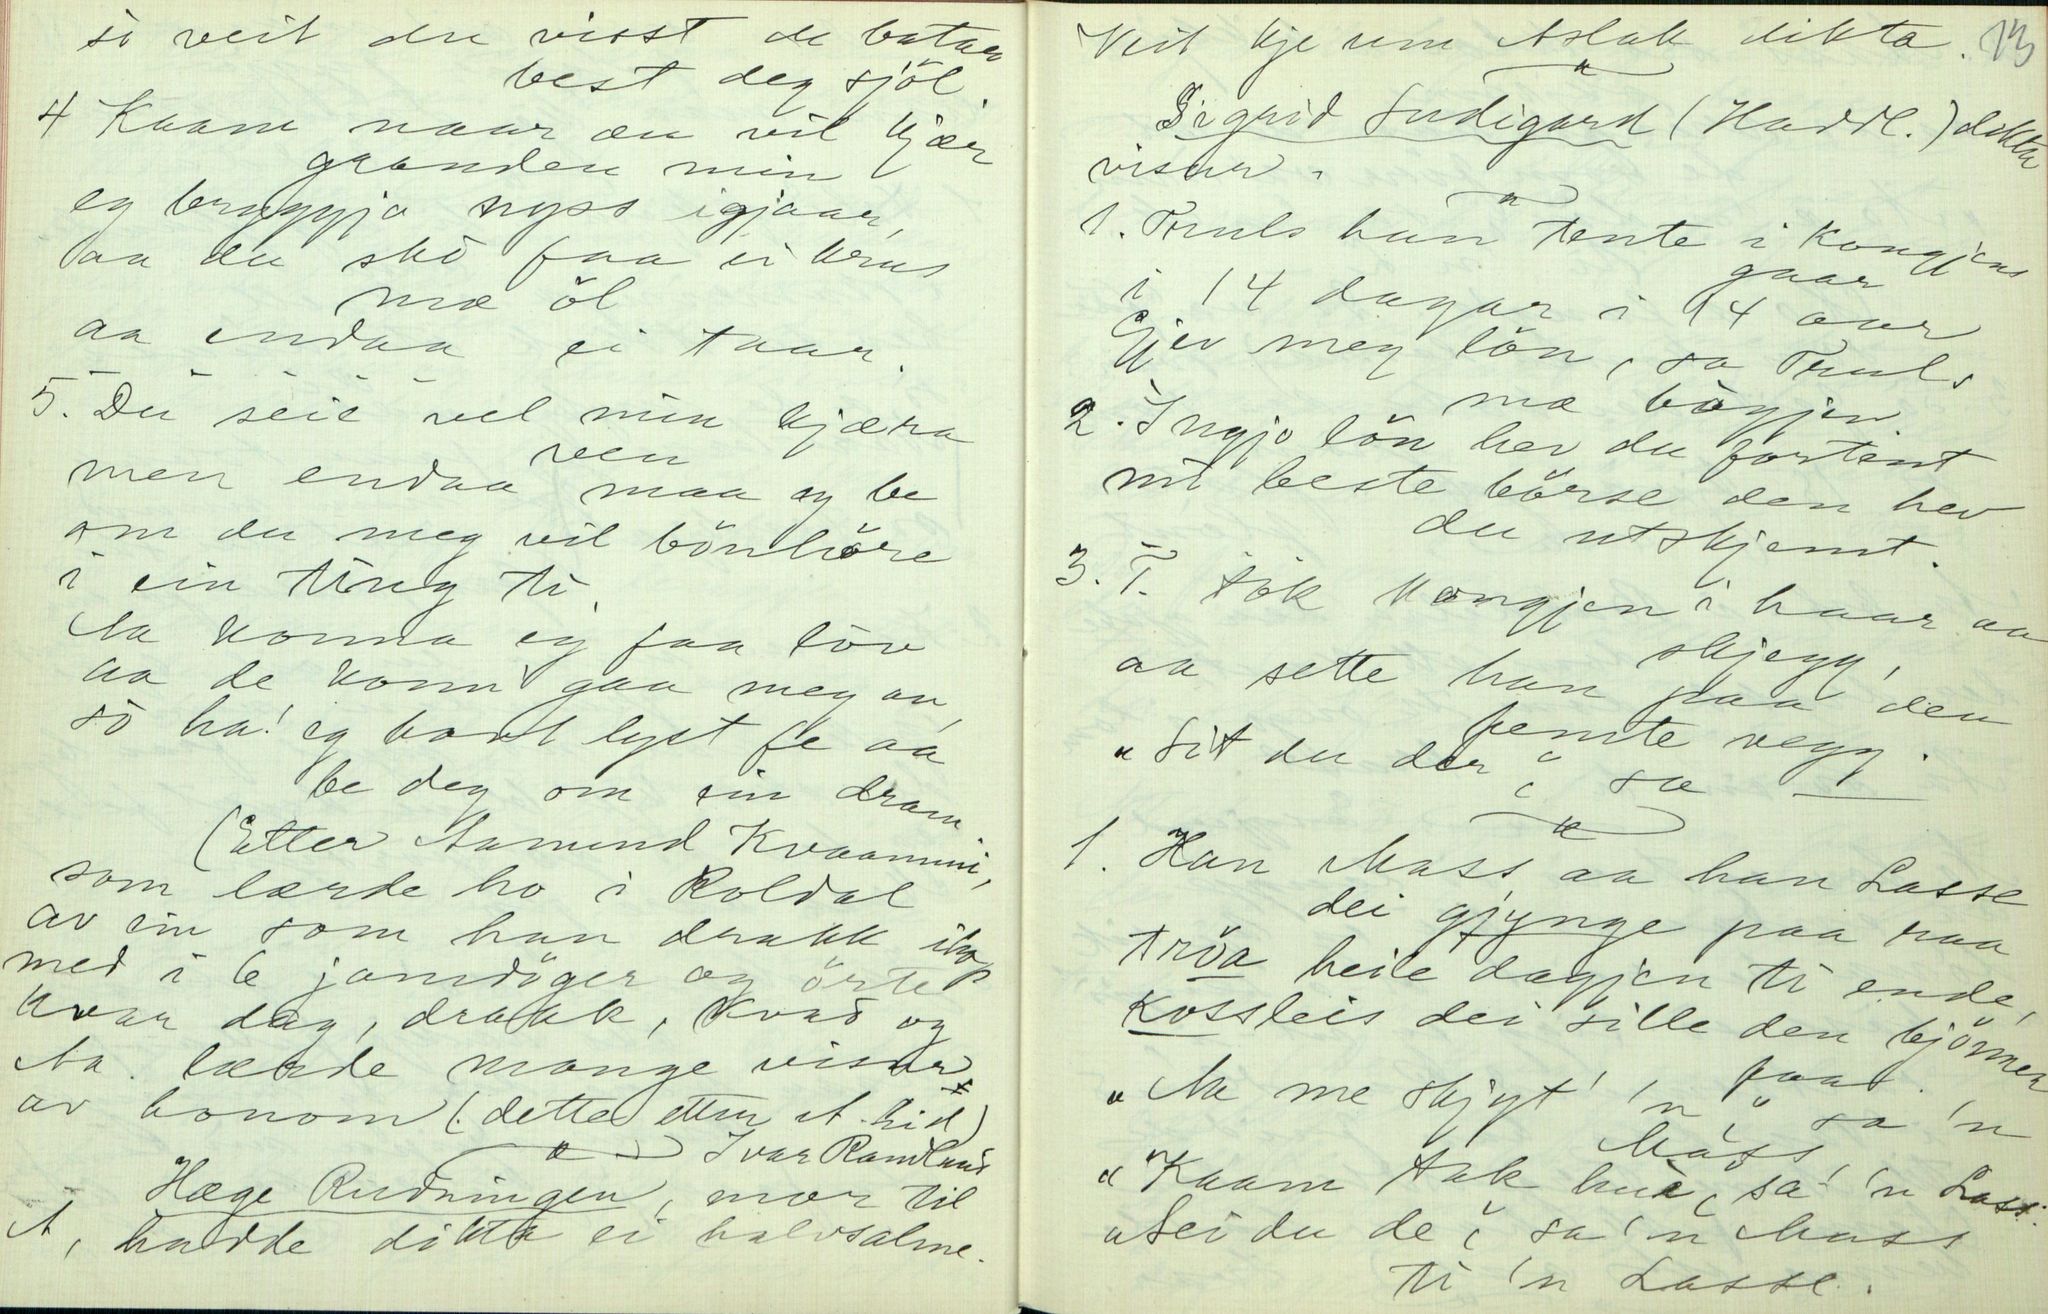 so veit du visst de batar
best deg sjöl.
4 Kaam naar du vil kjær
granden min
eg bryggja nyss igjaar,
aa du sko faa ei krus
mæ öl
aa endaa ei taar.
5. Du seie vel min kjæra
ven
men endaa maa eg be
om du meg vil bönhöre
i ein ting ti.
Aa konna eg faa löv
aa de konn gaa meg an,
so ha! eg havt lyst fe aa
be deg om ein dram.
(Etter Aamund Kvaammi,
som lærde ho i Roldal
av ein som han drakk ihop
med i 6 jamdöger og örte
kvar dag, drakk, kvad og
Aa. lærde mange visur
av honom (dette etter A. hid)
Ivar Ramlund
Hæge Rudningen, mor til
A, hadde dikta ei halvsalme.
Veit kje um Aslak dikta.
13
Sigrid Sudigard (Haddl.) dikta
visur.
1. Truls han tente i Kongjens
gaar
i 14 dagar i 14 aar
Gjev meg lön, sa Truls
mæ bogjen.
2. Ingjo lön hev du fortent
mi beste börse den hev
du utskjemt.
3. T. tok kongjen i haar aa
skjegg,
aa sette han paa den
femte vegg.
"Sit du der" sa —
1. Han Mass aa han Lasse
dei gjynge paa raa
tröa heile dagjen ti ende,
Kossleis dei sille den björnen
faa.
"Aa me skjyt 'n" sa 'n
Mass
"Kaam tak hue, sa 'n Lass.
"Sei du de" sa 'n Mass
ti 'n Lasse.